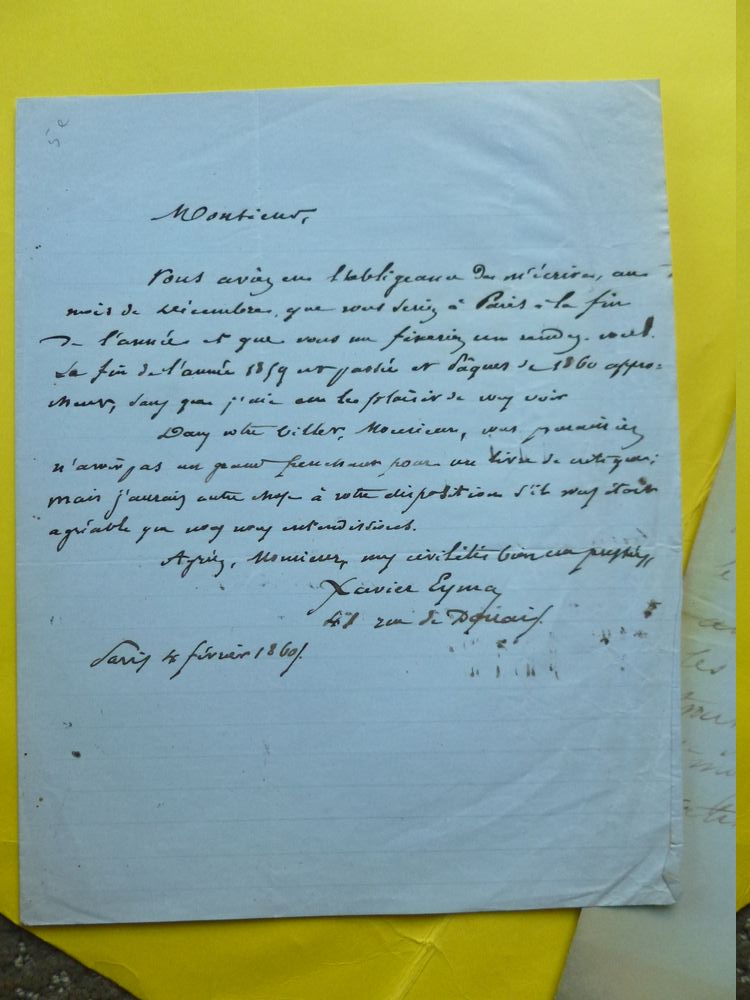 5e
Monsieur,
Vous aviez eu l'obligeance de m'écrire, au
mois de décembre, que vous seriez à Paris à la fin
de l'année et que vous me fixeriez un rendez-vous.
La fin de l'année 1859 est passée et Pâques de 1860 appro=
chent, sans que j'aie eu le plaisir de vous voir
Dans votre billet, Monsieur, vous paraissiez
n'avoir pas un grand penchant pour un livre de critique;
mais j'aurais autre chose à votre disposition s'il vous était
agréable que nous nous entendissions.
Agréez, Monsieur, mes civilités bien empressées
Xavier Eyma
48 rue de Douai.
Paris 4 février 1860.